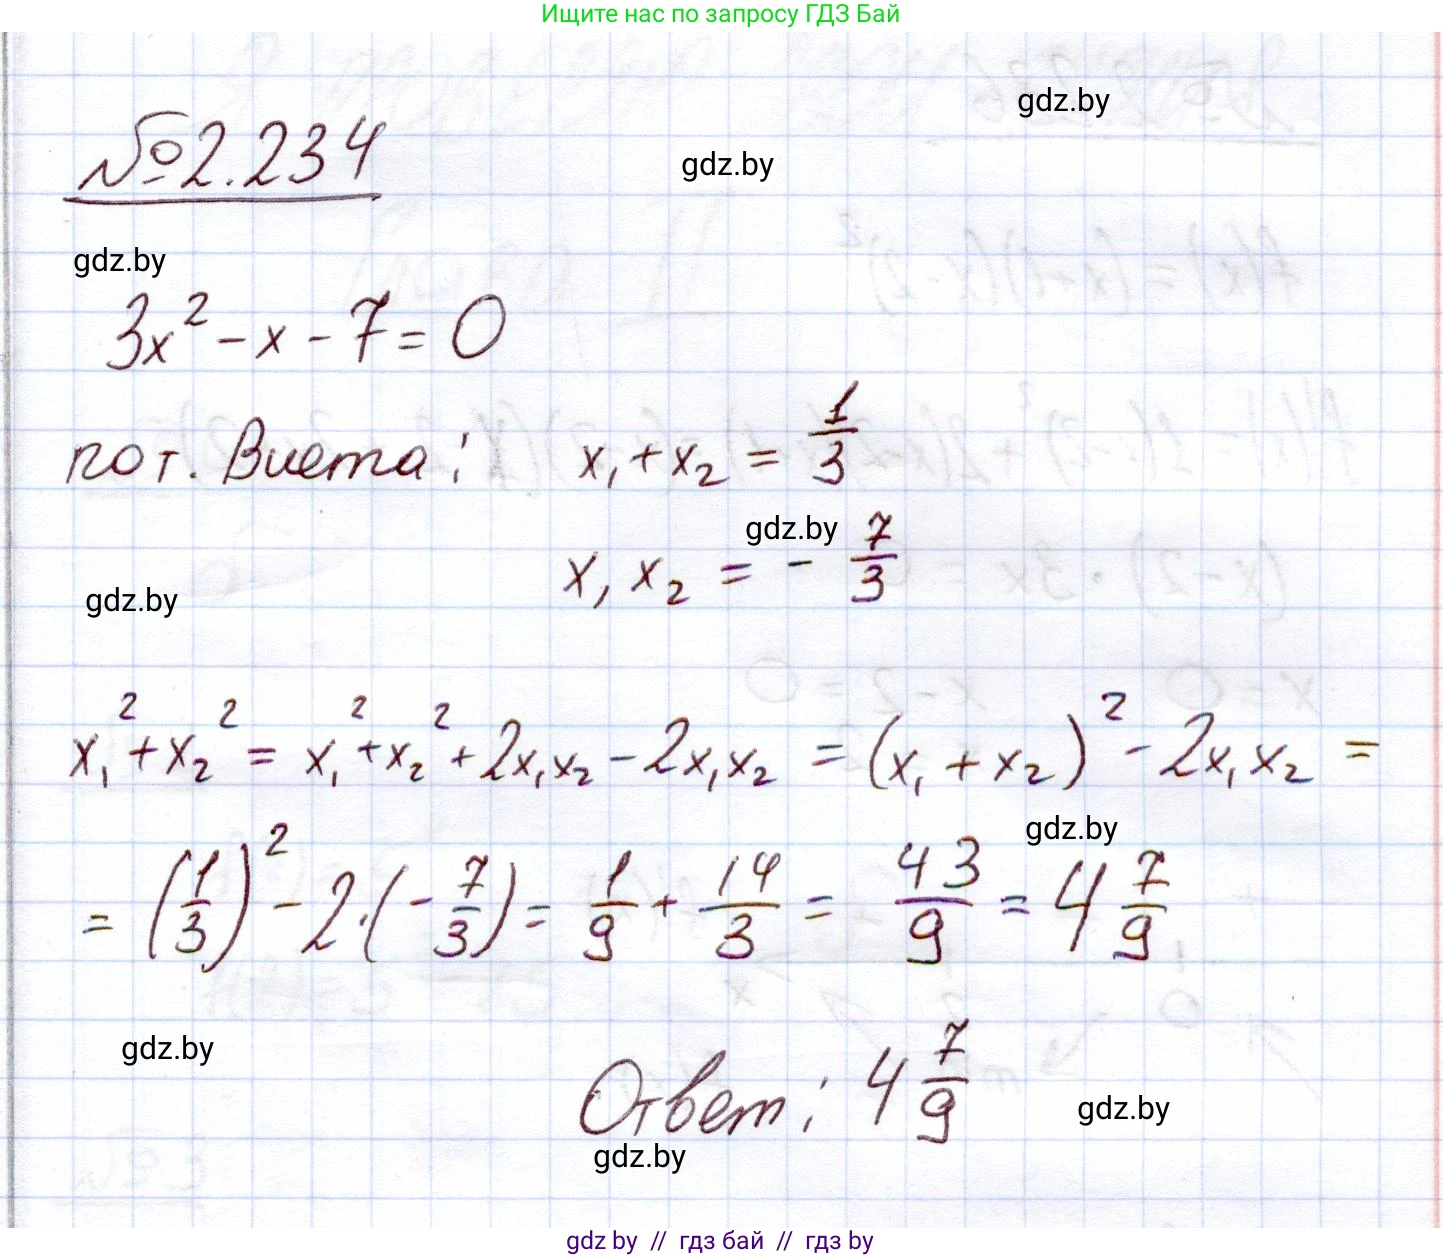 Ищите нас по запросу ГДЗ Бай
gdz.by
№2.234
gdz.by
gdz.by
3x² - x - 7 = 0
по т. Виета: x₁ + x₂ = 1/3
gdz.by
x₁ x₂ = - 7/3
gdz.by
x₁² + x₂² = x₁² + x₂² + 2x₁x₂ - 2x₁x₂ = (x₁ + x₂)² - 2x₁x₂ =
gdz.by
= (1/3)² - 2·(- 7/3) = 1/9 + 14/3 = 43/9 = 4 7/9
gdz.by
Ответ: 4 7/9
gdz.by
gdz.by
gdz by // гдз бай // гдз by